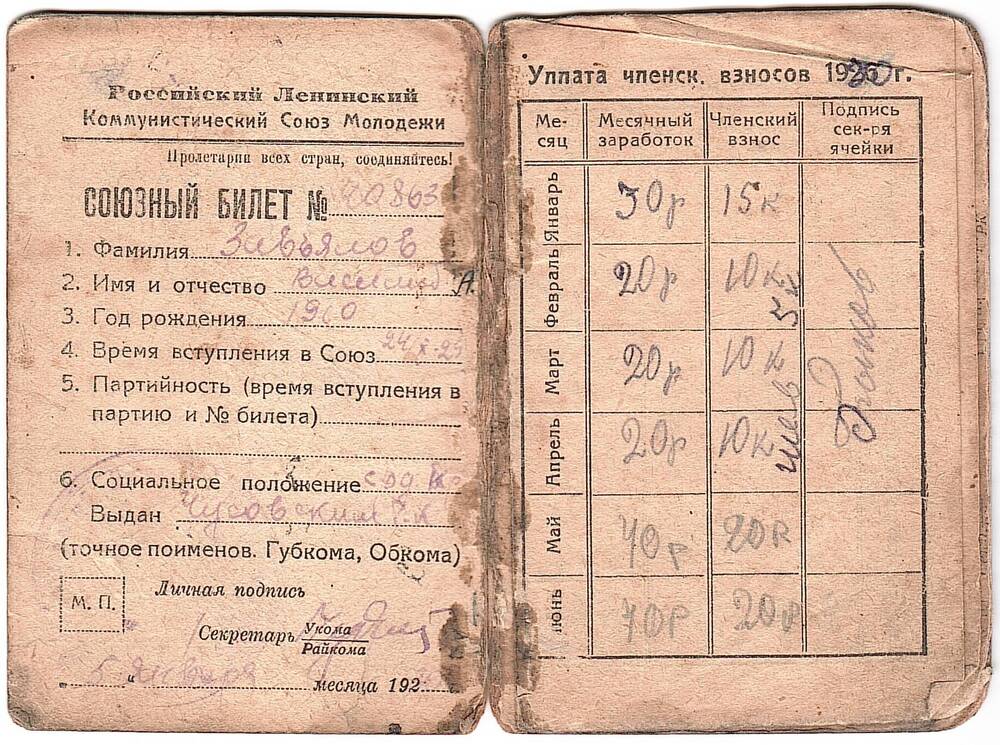 Российский Ленинский
Коммунистический Союз Молодежи
Пролетарии всех стран, соединяйтесь!
СОЮЗНЫЙ БИЛЕТ №
1. Фамилия Завьялов
2. Имя и отчество Василий А.
3. Год рождения 1910
4. Время вступления в Союз
5. Партийность (время вступления в
партию и № билета)
6. Социальное положение
Выдан Чусовским Р.К
(точное поименов. Губкома, Обкома)
М. П.
Личная подпись
Секретарь Укома
Райкома
5 января месяца 192
Уплата членск. взносов 192 г.
Ме-
сяц
Месячный
заработок
Членский
взнос
Подпись
сек-ря
ячейки
Январь 30р 15к
Февраль 20р 10к 5к
Март 20р 10к
Апрель 20р 10к
Май 40р 20к
Июнь 20к